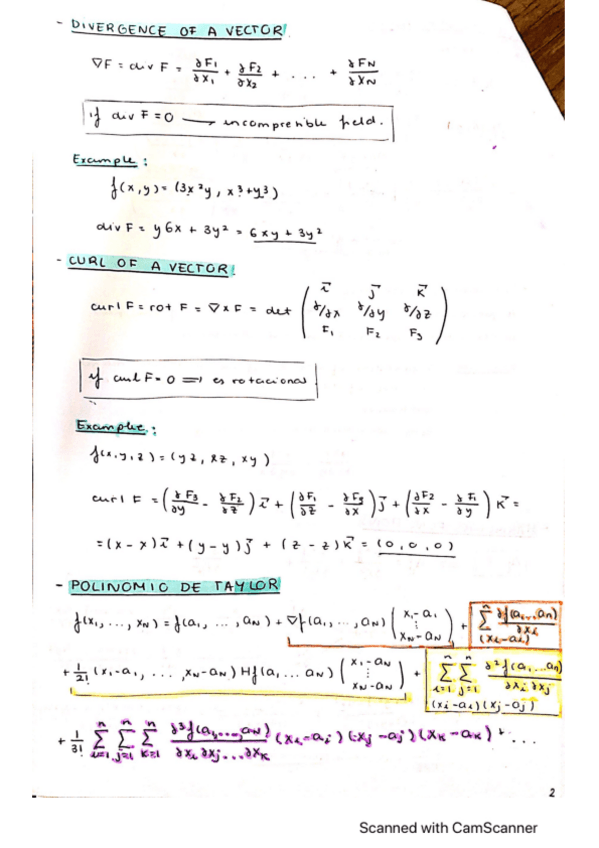 - DIVERGENCE OF A VECTOR
∇F = div F = ∂F1/∂x1 + ∂F2/∂x2 + ... + ∂FN/∂XN
if div F = 0 → incompresible field.
Example:
f(x,y) = (3x²y, x³+y³)
div F = y6x + 3y² = 6xy + 3y²
- CURL OF A VECTOR
curl F = rot F = ∇ x F = det ( i⃗ j⃗ k⃗
∂/∂x ∂/∂y ∂/∂z
F1 F2 F3 )
if curl F = 0 ⟹ es rotacional
Example:
f(x,y,z) = (yz, xz, xy)
curl F = (∂F3/∂y - ∂F2/∂z) i⃗ + (∂F1/∂z - ∂F3/∂x) j⃗ + (∂F2/∂x - ∂F1/∂y) K⃗ =
= (x - x) i⃗ + (y - y) j⃗ + (z - z) K⃗ = (0, 0, 0)
- POLINOMIO DE TAYLOR
f(x1, ..., XN) = f(a1, ..., aN) + ∇f(a1, ..., aN) (x1 - a1 ⋮ XN - aN) + Σ^n ∂f(a1...an)/∂xi (xi - ai)
+ 1/2! (x1 - a1, ..., XN - aN) Hf(a1, ... aN) (x1 - aN ⋮ XN - aN) + Σ^n i=1 Σ^n j=1 ∂²f(a1...an)/∂xi ∂xj (xi - ai)(xj - aj)
+ 1/3! Σ^n i=1 Σ^n j=1 Σ^n k=1 ∂³f(a1,...,aN)/∂xi ∂xj...∂xK (xi - ai)(xj - aj)(xK - aK) + ...
2
Scanned with CamScanner